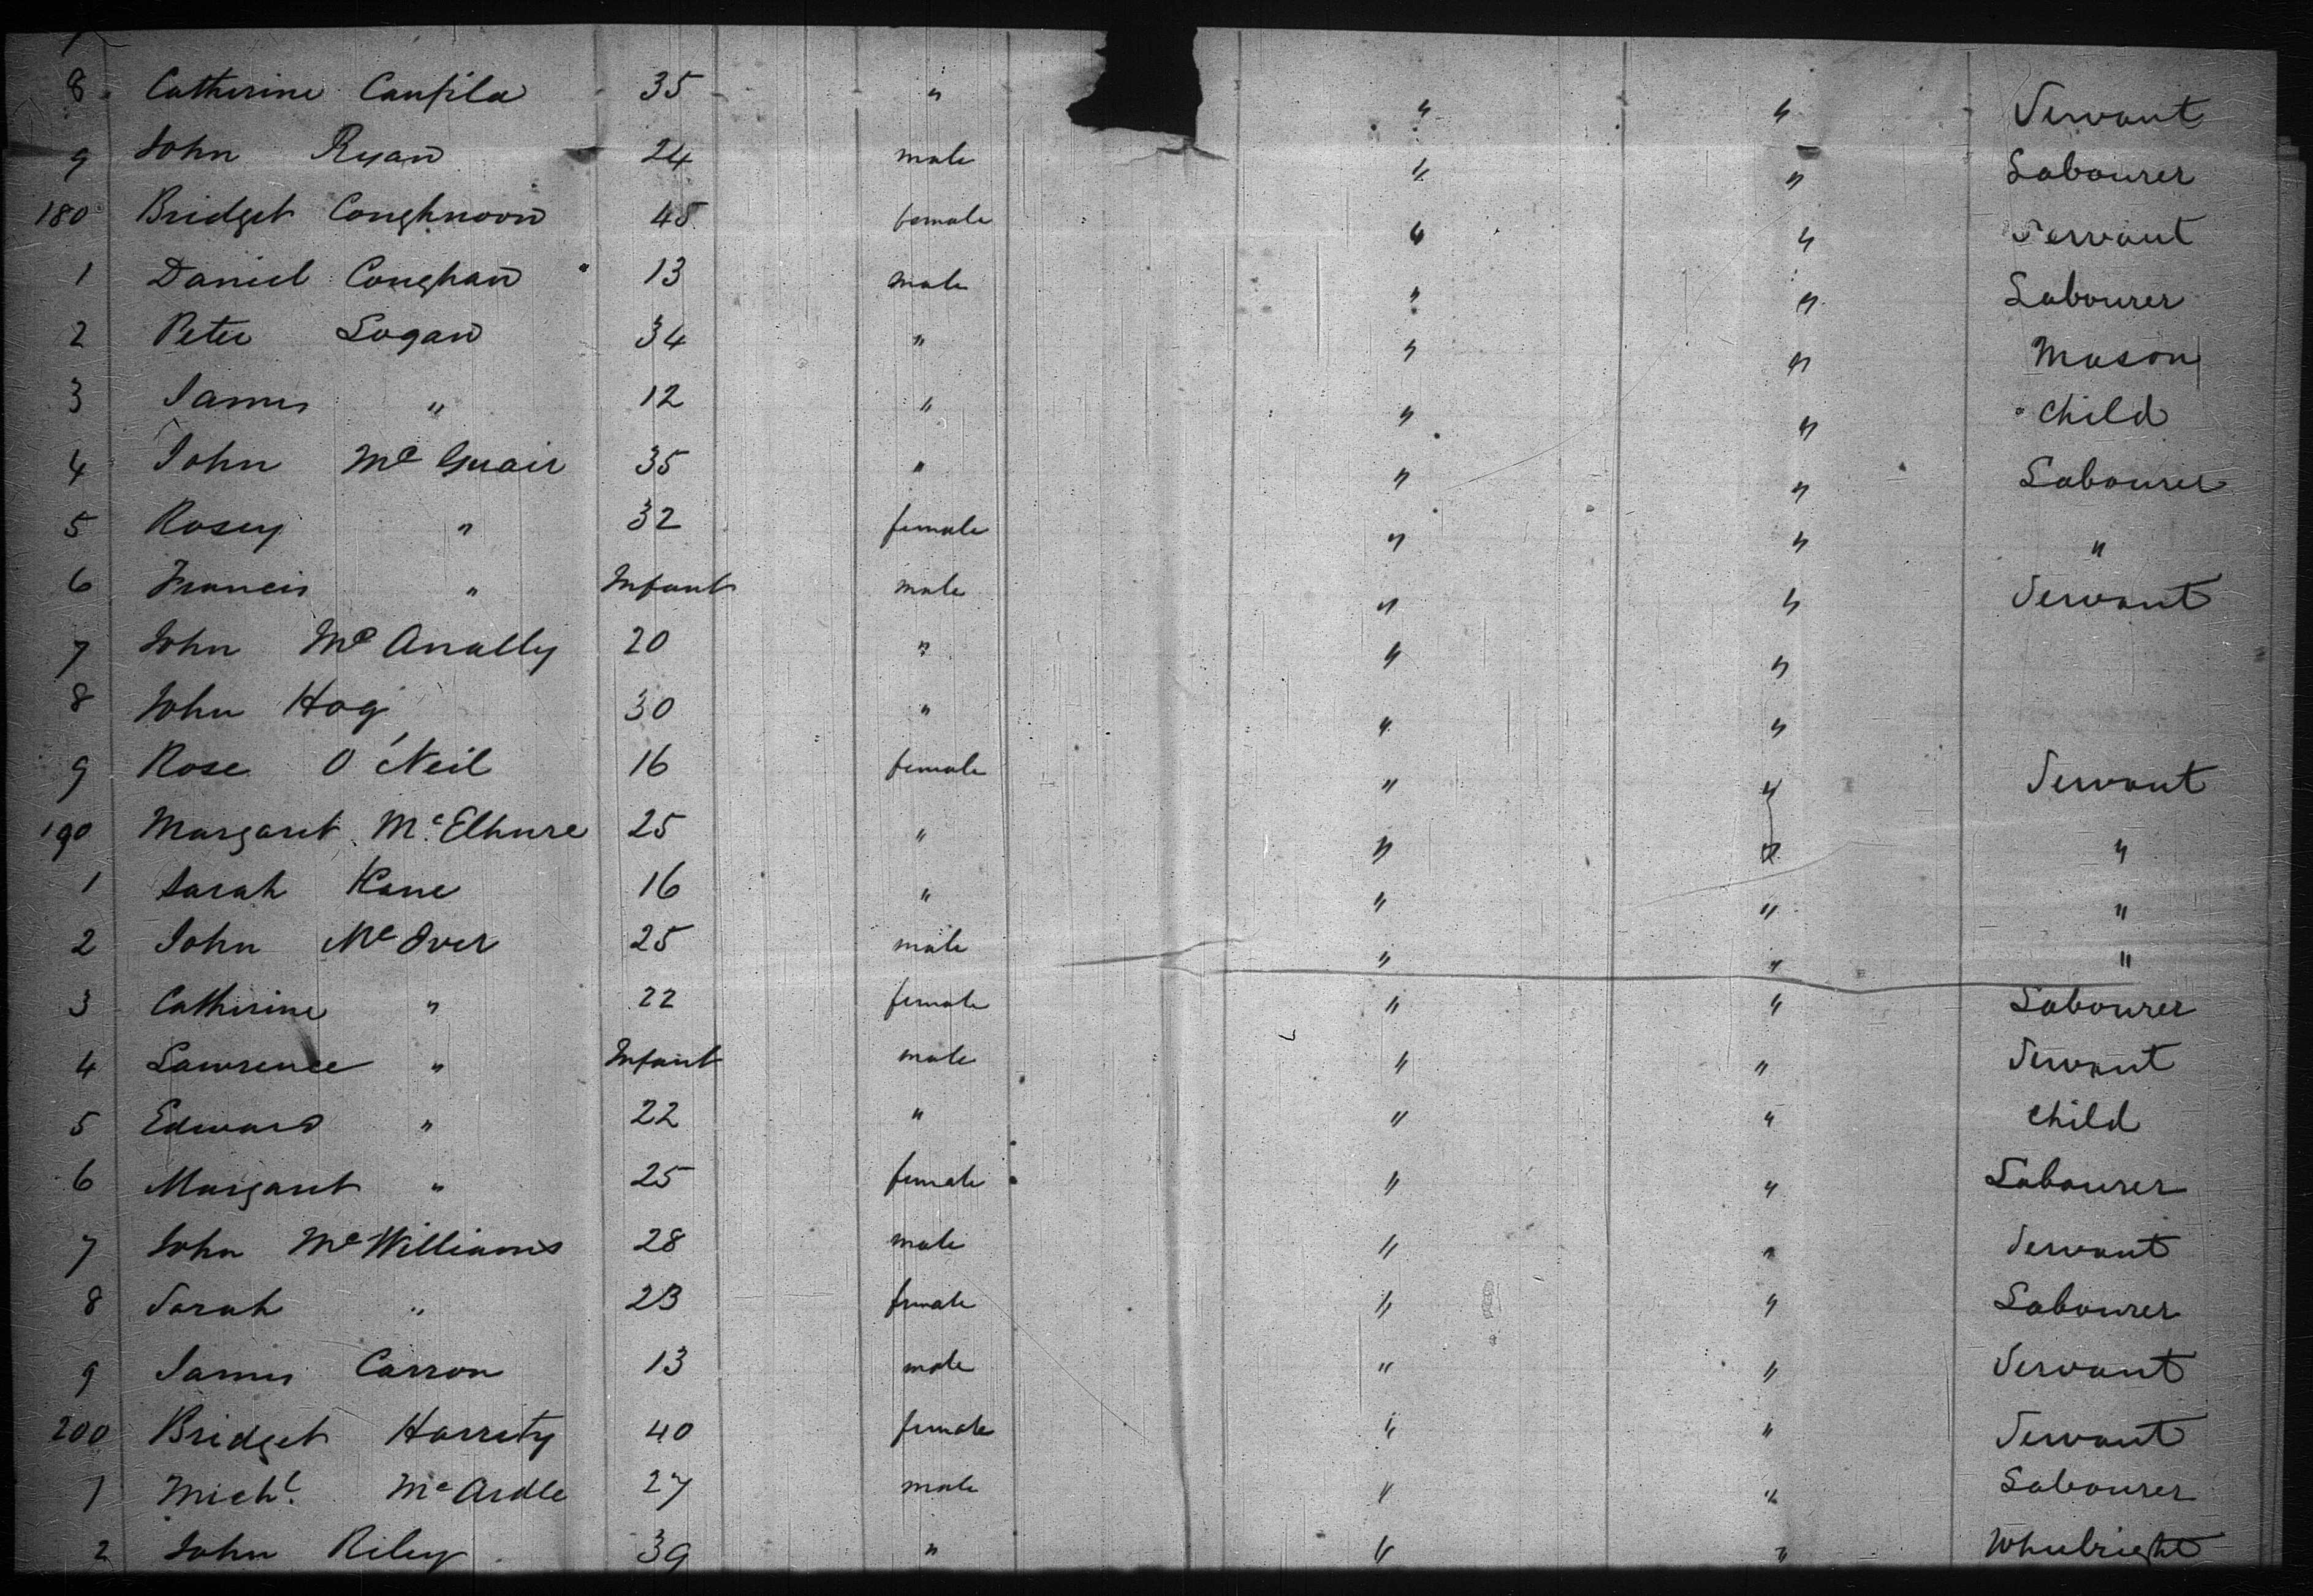 8 Catherine Canfila 35 " " " Servant
9 John Ryan 24 male " " Labourer
180 Bridget Conghnoon 45 female " " Servant
1 Daniel Conghan 13 male " " Labourer
2 Peter Logan 34 " " " Mason
3 James " 12 " " " Child
4 John Mc Guair 35 " " " Labourer
5 Rosey " 32 female " " "
6 Francis " Infant male " " Servant
7 John Mc Anally 20 " " "
8 John Hog 30 " " "
9 Rose O'Neil 16 female " " Servant
190 Margaret Mc Elhure 25 " " " "
1 Sarah Kane 16 " " " "
2 John Mc Iver 25 male " " "
3 Catherine " 22 female " " Labourer
4 Lawrence " Infant male " " Servant
5 Edward " 22 " " " Child
6 Margaret " 25 female " " Labourer
7 John Mc Williams 28 male " " Servant
8 Sarah " 23 female " " Labourer
9 James Carron 13 male " " Servant
200 Bridget Harrety 40 female " " Servant
1 Michl. Mc Ardle 27 male " " Labourer
2 John Riley 39 " " " Wheelright